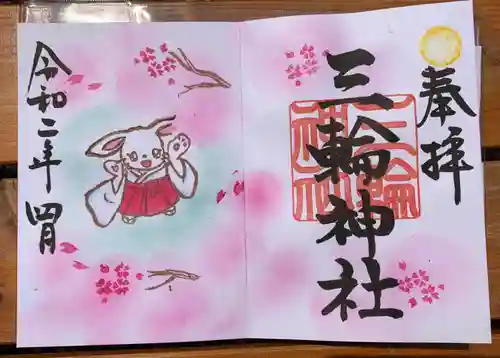 奉拝
三輪神社
三輪
神社
令和二年 四月